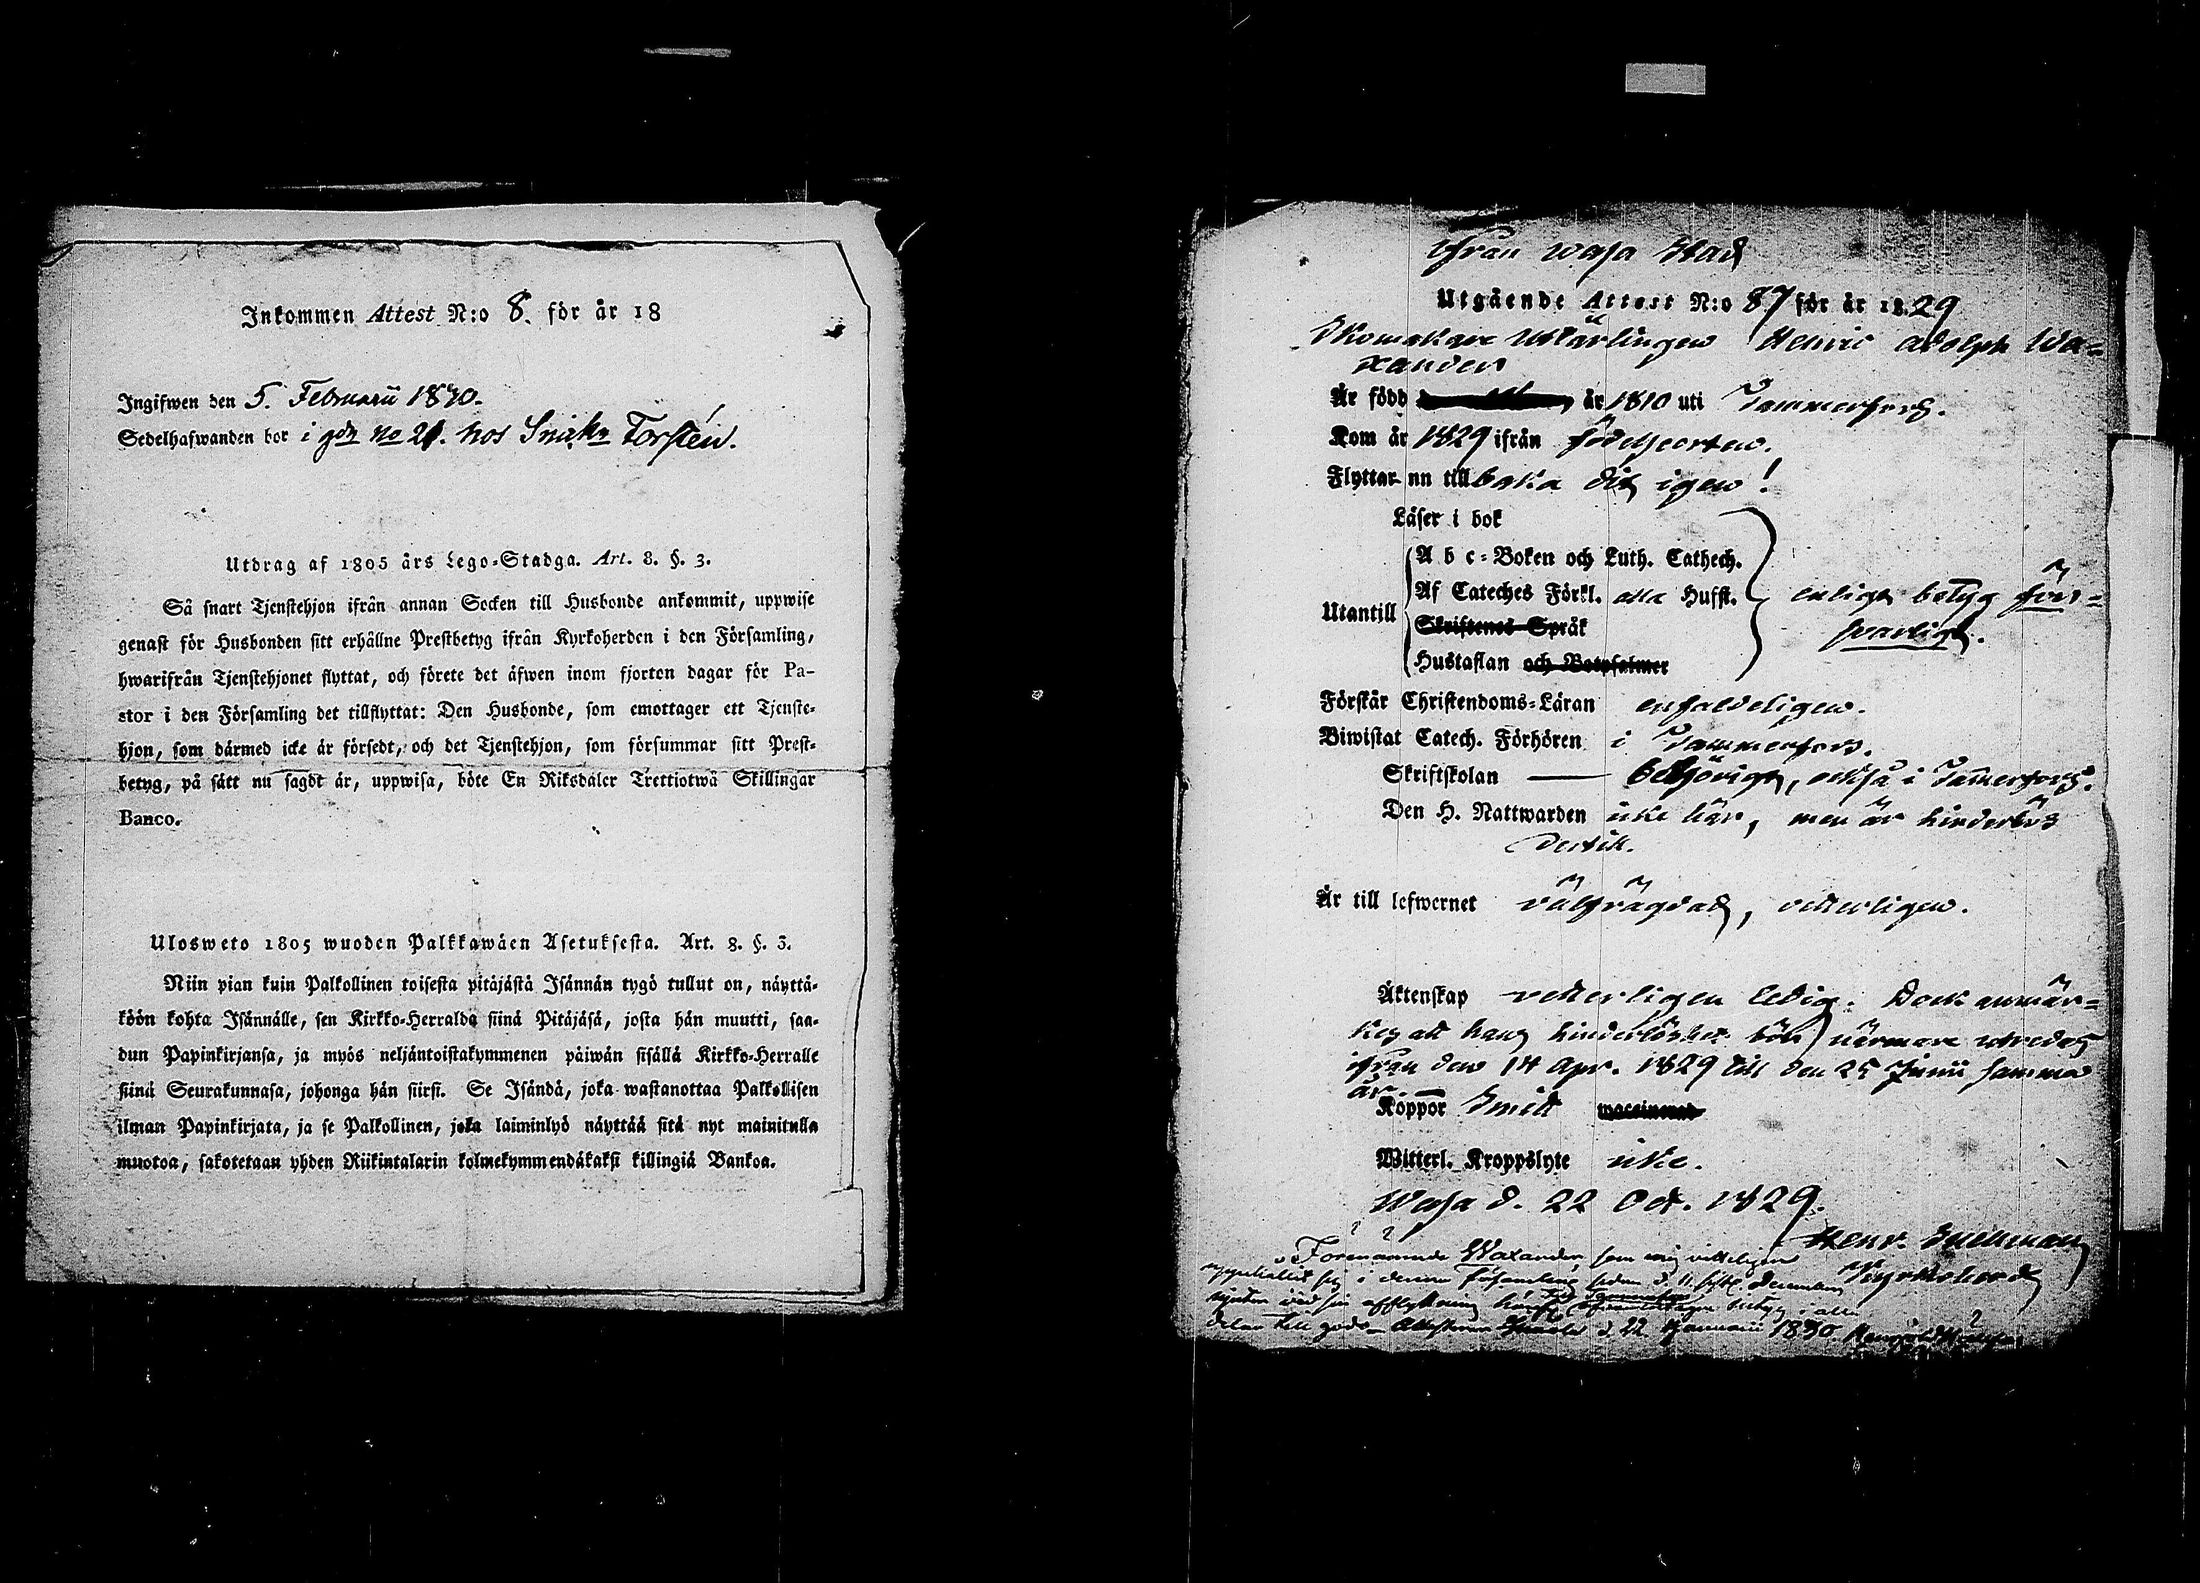 Inkommen Attest N:o 8. för år 18
Ingifwen den 5. Februarii 1830.
Sedelhafwanden bor i gdn No 21. hos Snickr Torstén.
Utdrag af 1805 års Lego-Stadga. Art. 8. §. 3.
Så snart Tjenstehjon ifrån annan Socken till Husbonde ankommit, uppwise
genast för Husbonden sitt erhållne Prestbetyg ifrån Kyrkoherden i den Församling,
hwarifrån Tjenstehjonet flyttat, och förete det äfwen inom fjorton dagar för Pa-
stor i den Församling det tillflyttat: Den Husbonde, som emottager ett Tjenste-
hjon, som därmed icke är försedt, och det Tjenstehjon, som försummar sitt Prest-
betyg, på sätt nu sagdt är, uppwisa, böte En Riksdaler Trettiotwå Skillingar
Banco.
Ulosweto 1805 wuoden Palkkawäen Asetuksesta. Art. 8. §. 3.
Niin pian kuin Palkollinen toisesta pitäjästä Isännän tygö tullut on, näyttä-
köön kohta Isännälle, sen Kirkko-Herralda siinä Pitäjäsä, josta hän muutti, saa-
dun Papinkirjansa, ja myös neljäntoistakymmenen päiwän sisällä Kirkko-Herralle
siinä Seurakunnasa, johonga hän siirsi. Se Isändä, joka wastanottaa Palkollisen
ilman Papinkirjata, ja se Palkollinen, joka laiminlyö näyttää sitä nyt mainitulla
muotoa, sakotetaan yhden Riikintalarin kolmekymmendäkaksi killingiä Bankoa.
Ifrån Wasa Stad
Utgående Attest N:o 87 för år 1829
Skomakare Lärlingen Henric Adolph Wa-
xander
Är född år 1810 uti Tammerfors.
Kom år 1829 ifrån födelseorten.
Flyttar nn tillbaka dit igen!
Läser i bok
Utantill
A b c-Boken och Luth. Cathech.
Af Cateches Förkl. alla Hufst.
Skriftenes Språk
Hustaflan och Botpsalmer
enligt betyg för-
svarligt.
Förstår Christendoms-Läran enfaldeligen.
Biwistat Catech. Förhören i Tammerfors.
Skriftskolan behörigt, också i Tammerfors.
Den H. Nattwarden icke här, men är hinderlös
dertill.
Är till lefwernet välfrägdad, vetterligen.
Äktenskap vetterligen ledig. Dock anmär-
kes att hans hinderlöshet bör närmare utredas
ifrån den 14 Apr. 1829 till den 25 Junii samma
år.
Koppor haft waccinerad
Witterl. Kroppslyte icke.
Wasa d. 22 Oct. 1829.
Henr.
Kyrkoherde
Förenämnde Waxander, som sig vetteligen
uppehållit sig i denna församling sedan d. 11 sistl.
wid sin afflyttning betyg i alla
delar till godo d. 22 Januarii 1830.